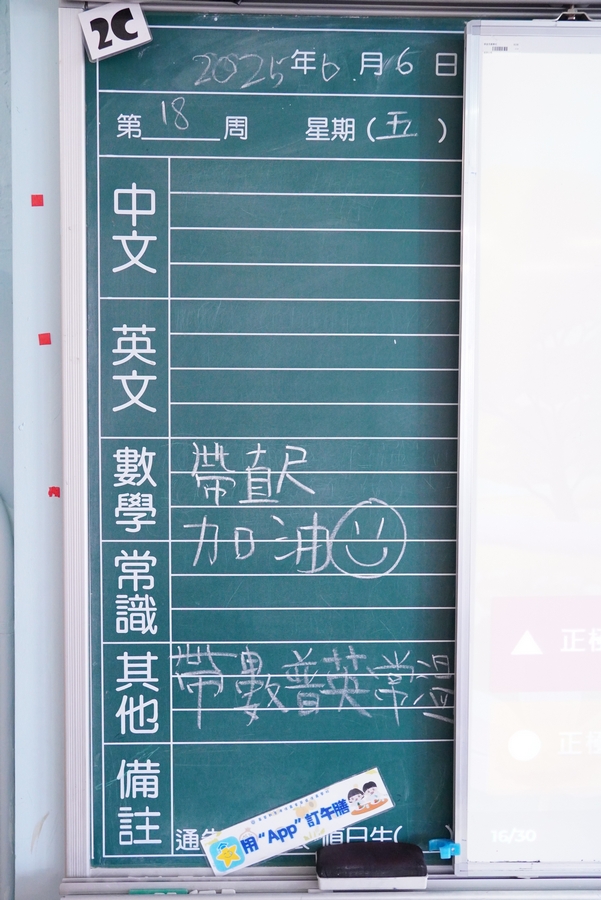 2C
2025年6月6日
第18周 星期(五)
中文
英文
數學
帶直尺
加油
常識
其他
帶數普英常
備註
通告
值日生(
用“App”訂午膳
正極
正極
16/30